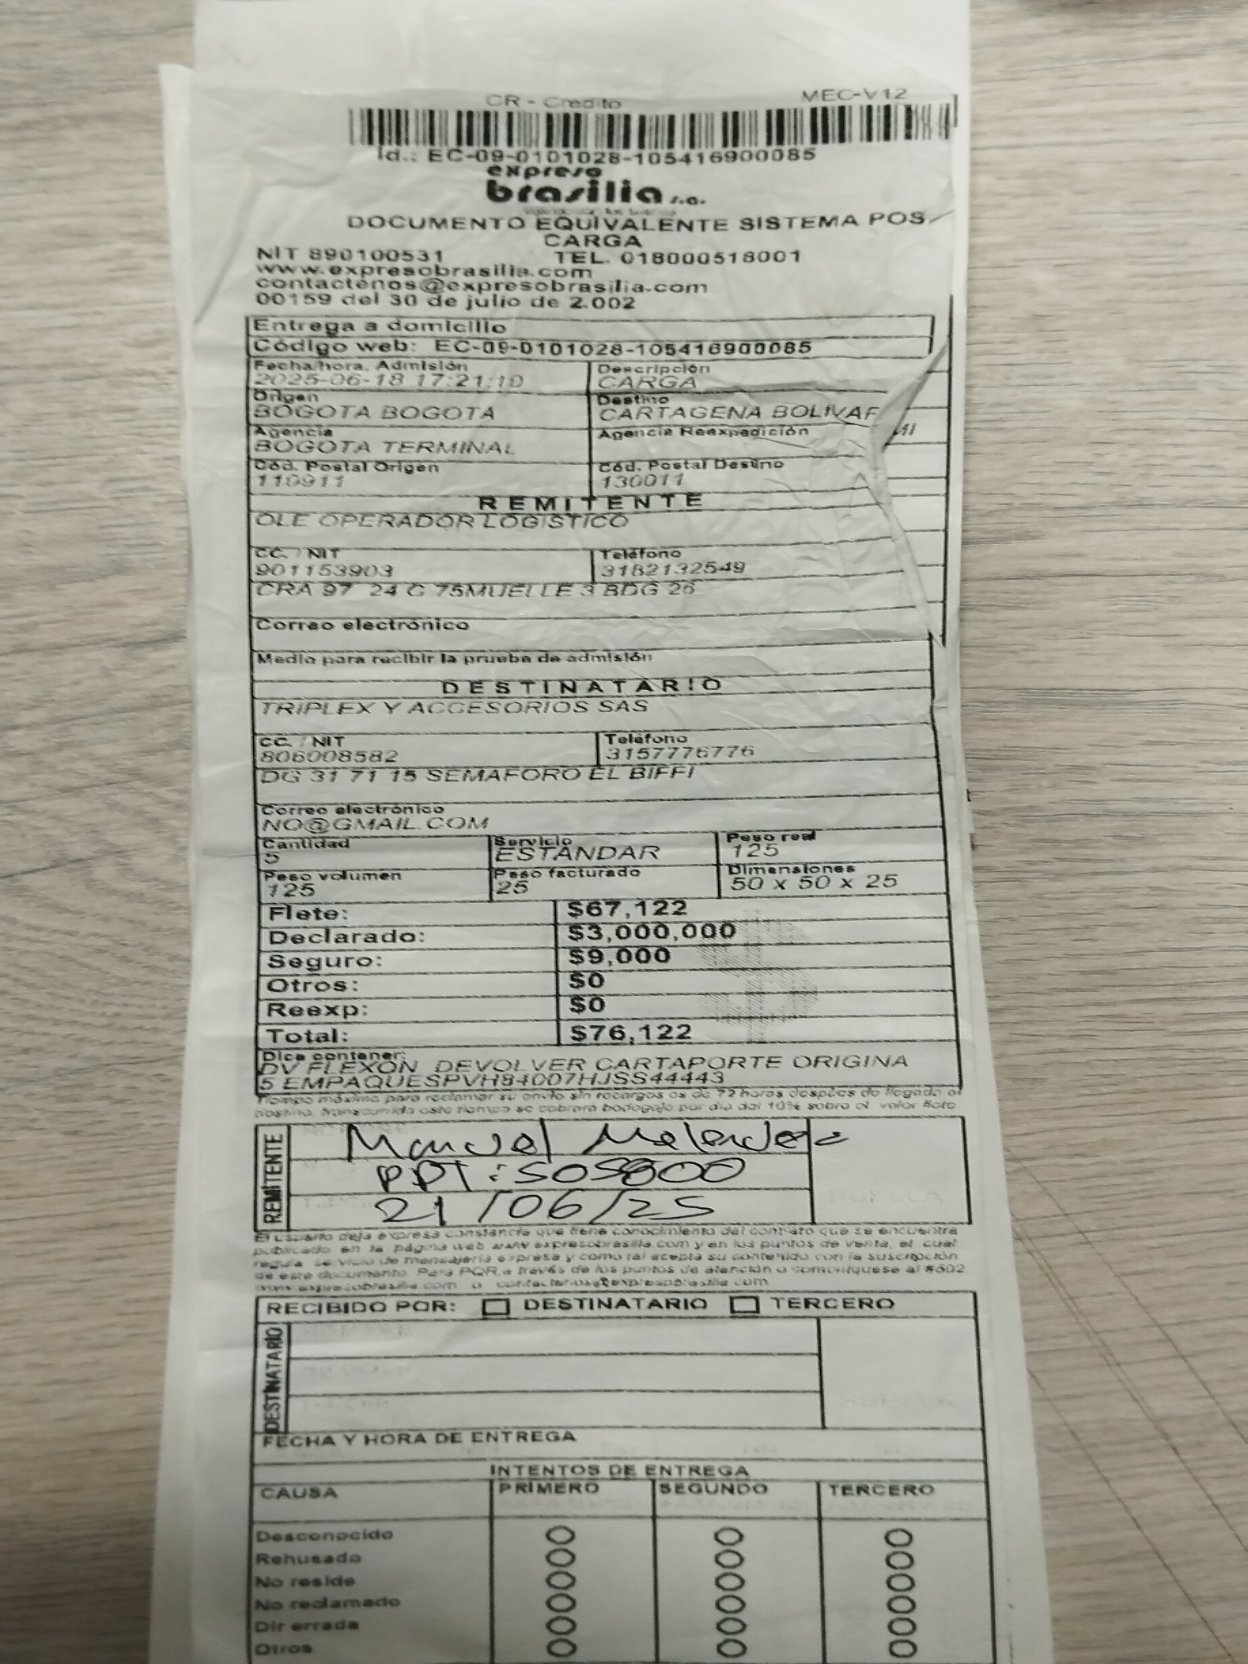 CR - Credito MEC-V12
Id.: EC-09-0101028-105416900085
expreso
brasilia s.a.
DOCUMENTO EQUIVALENTE SISTEMA POS
CARGA
NIT 890100531 TEL. 018000518001
www.expresobrasilia.com
contactenos@expresobrasilia.com
00159 del 30 de julio de 2.002
Entrega a domicilio
Código web: EC-09-0101028-105416900085
Fecha/hora. Admisión Descripción
2025-06-18 17:21:10 CARGA
Origen Destino
BOGOTA BOGOTA CARTAGENA BOLIVAR
Agencia Agencia Reexpedición
BOGOTA TERMINAL
Cód. Postal Origen Cód. Postal Destino
110911 130011
REMITENTE
OLE OPERADOR LOGISTICO
CC. / NIT Teléfono
901153903 3182132549
CRA 97 24 C 75MUELLE 3 BDG 26
Correo electrónico
Medio para recibir la prueba de admisión
DESTINATARIO
TRIPLEX Y ACCESORIOS SAS
CC. / NIT Teléfono
806008582 3157776776
DG 31 71 15 SEMAFORO EL BIFFI
Correo electrónico
NO@GMAIL.COM
Cantidad Servicio Peso real
5 ESTANDAR 125
Peso volumen Peso facturado Dimensiones
125 25 50 x 50 x 25
Flete: $67,122
Declarado: $3,000,000
Seguro: $9,000
Otros: $0
Reexp: $0
Total: $76,122
Dice contener:
DV FLEXON DEVOLVER CARTAPORTE ORIGINA
5 EMPAQUESPVH84007HJSS44443
Tiempo máximo para reclamar su envio sin recargos es de 72 horas después de llegada al
destino, transcurrido este tiempo se cobrará bodegaje por día del 10% sobre el valor flete
REMITENTE
Manuel Melendez
PPT: 505800
21/06/25
El usuario deja expresa constancia que tiene conocimiento del contrato que se encuentra
publicado en la página web www.expresobrasilia.com y en los puntos de venta, el cual
regula el servicio de mensajería expresa y como tal acepta su contenido con la suscripción
de este documento. Para PQR a través de los puntos de atención o comuníquese al #502
www.expresobrasilia.com o contactenos@expresobrasilia.com
RECIBIDO POR: DESTINATARIO TERCERO
DESTINATARIO
FECHA Y HORA DE ENTREGA
INTENTOS DE ENTREGA
CAUSA PRIMERO SEGUNDO TERCERO
Desconocido
Rehusado
No reside
No reclamado
Dir errada
Otros